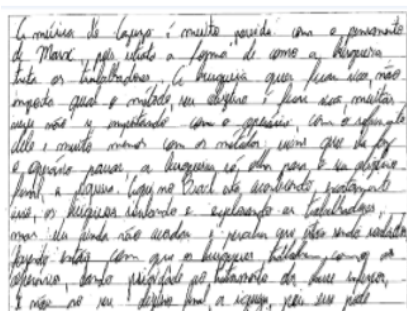 A música do Cazuza é muito parecida com o pensamento
de Marx, pois relata a forma de como a burguesia
trata os trabalhadores. A burguesia quer ficar rica, não
importa qual o método, seu objetivo é ficar rica, muitas
vezes não se importando com o operário, com o
dele e muito menos com os métodos, nem que
o operário a burguesia só olha para o seu objetivo
final, a riqueza. Aqui no Brasil está acontecendo exatamente
isso, os burgueses e explorando os trabalhadores,
mas eles ainda não e que estão sendo
fazendo então com que os burgueses como os
operários, dando prioridade ao tratamento da classe inferior,
e não no seu final, a riqueza,